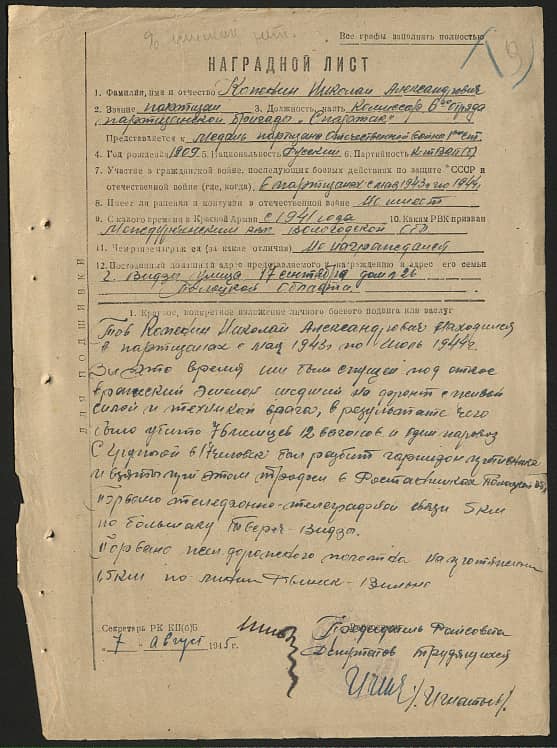 Все графы заполнять полностью
НАГРАДНОЙ ЛИСТ
1. Фамилия, имя и отчество Николай Александрович
2. Звание партизан 3. Должность, часть Комиссар 6го отряда
партизанской бригады "Спартак"
Представляется к медаль партизана Отечественной войны 1ой ст.
4. Год рождения 1909 5. Национальность Русский 6. Партийность
7. Участие в гражданской войне, последующих боевых действиях по защите СССР и
отечественной войне (где, когда) В партизанах с мая 1943г по 1944г
8. Имеет ли ранения и контузии в отечественной войне Не имеет
9. С какого времени в Красной Армии с 1941 года 10. Каким РВК призван
Вологодской
11. Чем ранее награжден (за какие отличия) Не награжденный
12. Постоянный домашний адрес представляемого к награждению и адрес его семьи
г. Видзы улица 17 сентября дом 26
Полоцкой области
ДЛЯ ПОДШИВКИ
1. Краткое, конкретное изложение личного боевого подвига или заслуг
Тов Николай Александрович находился
в партизанах с мая 1943г по июль 1944г.
За это время им был спущен под откос
вражеский эшелон шедший на фронт с живой
силой и техникой врага, в результате чего
было убито 76 немцев 12 вагонов и один паровоз
С группой в 17 человек был разбит гарнизон противника
и взяты при этом трофеи в
Порвано телефонно-телеграфной связи 5 км
по большаку -Видзы.
Порвано жел.дорожного полотна на протяжении
1,5 км по линии Двинск - Вильно
Секретарь РК КП(б)Б
7 август 1945 г.
Председатель Райсовета
Депутатов трудящихся
/Игнатьев/